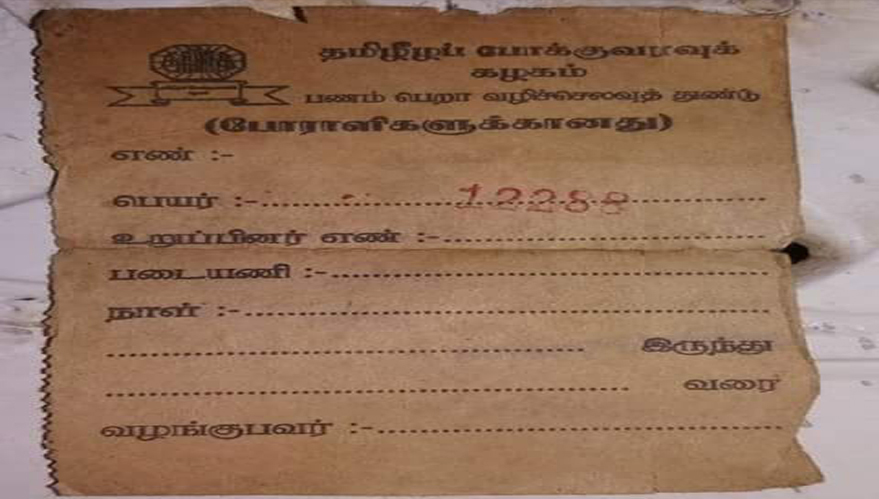 தமிழீழப் போக்குவரவுக்
கழகம்
பணம் பெறா வழிச்செலவுத் துண்டு
(போராளிகளுக்கானது)
எண் :-
பெயர் :-.......................12288.......................
உறுப்பினர் எண் :-..............................................
படையணி :-..............................................
நாள் :-..............................................
.............................................. இருந்து
.............................................. வரை
வழங்குபவர் :-..............................................